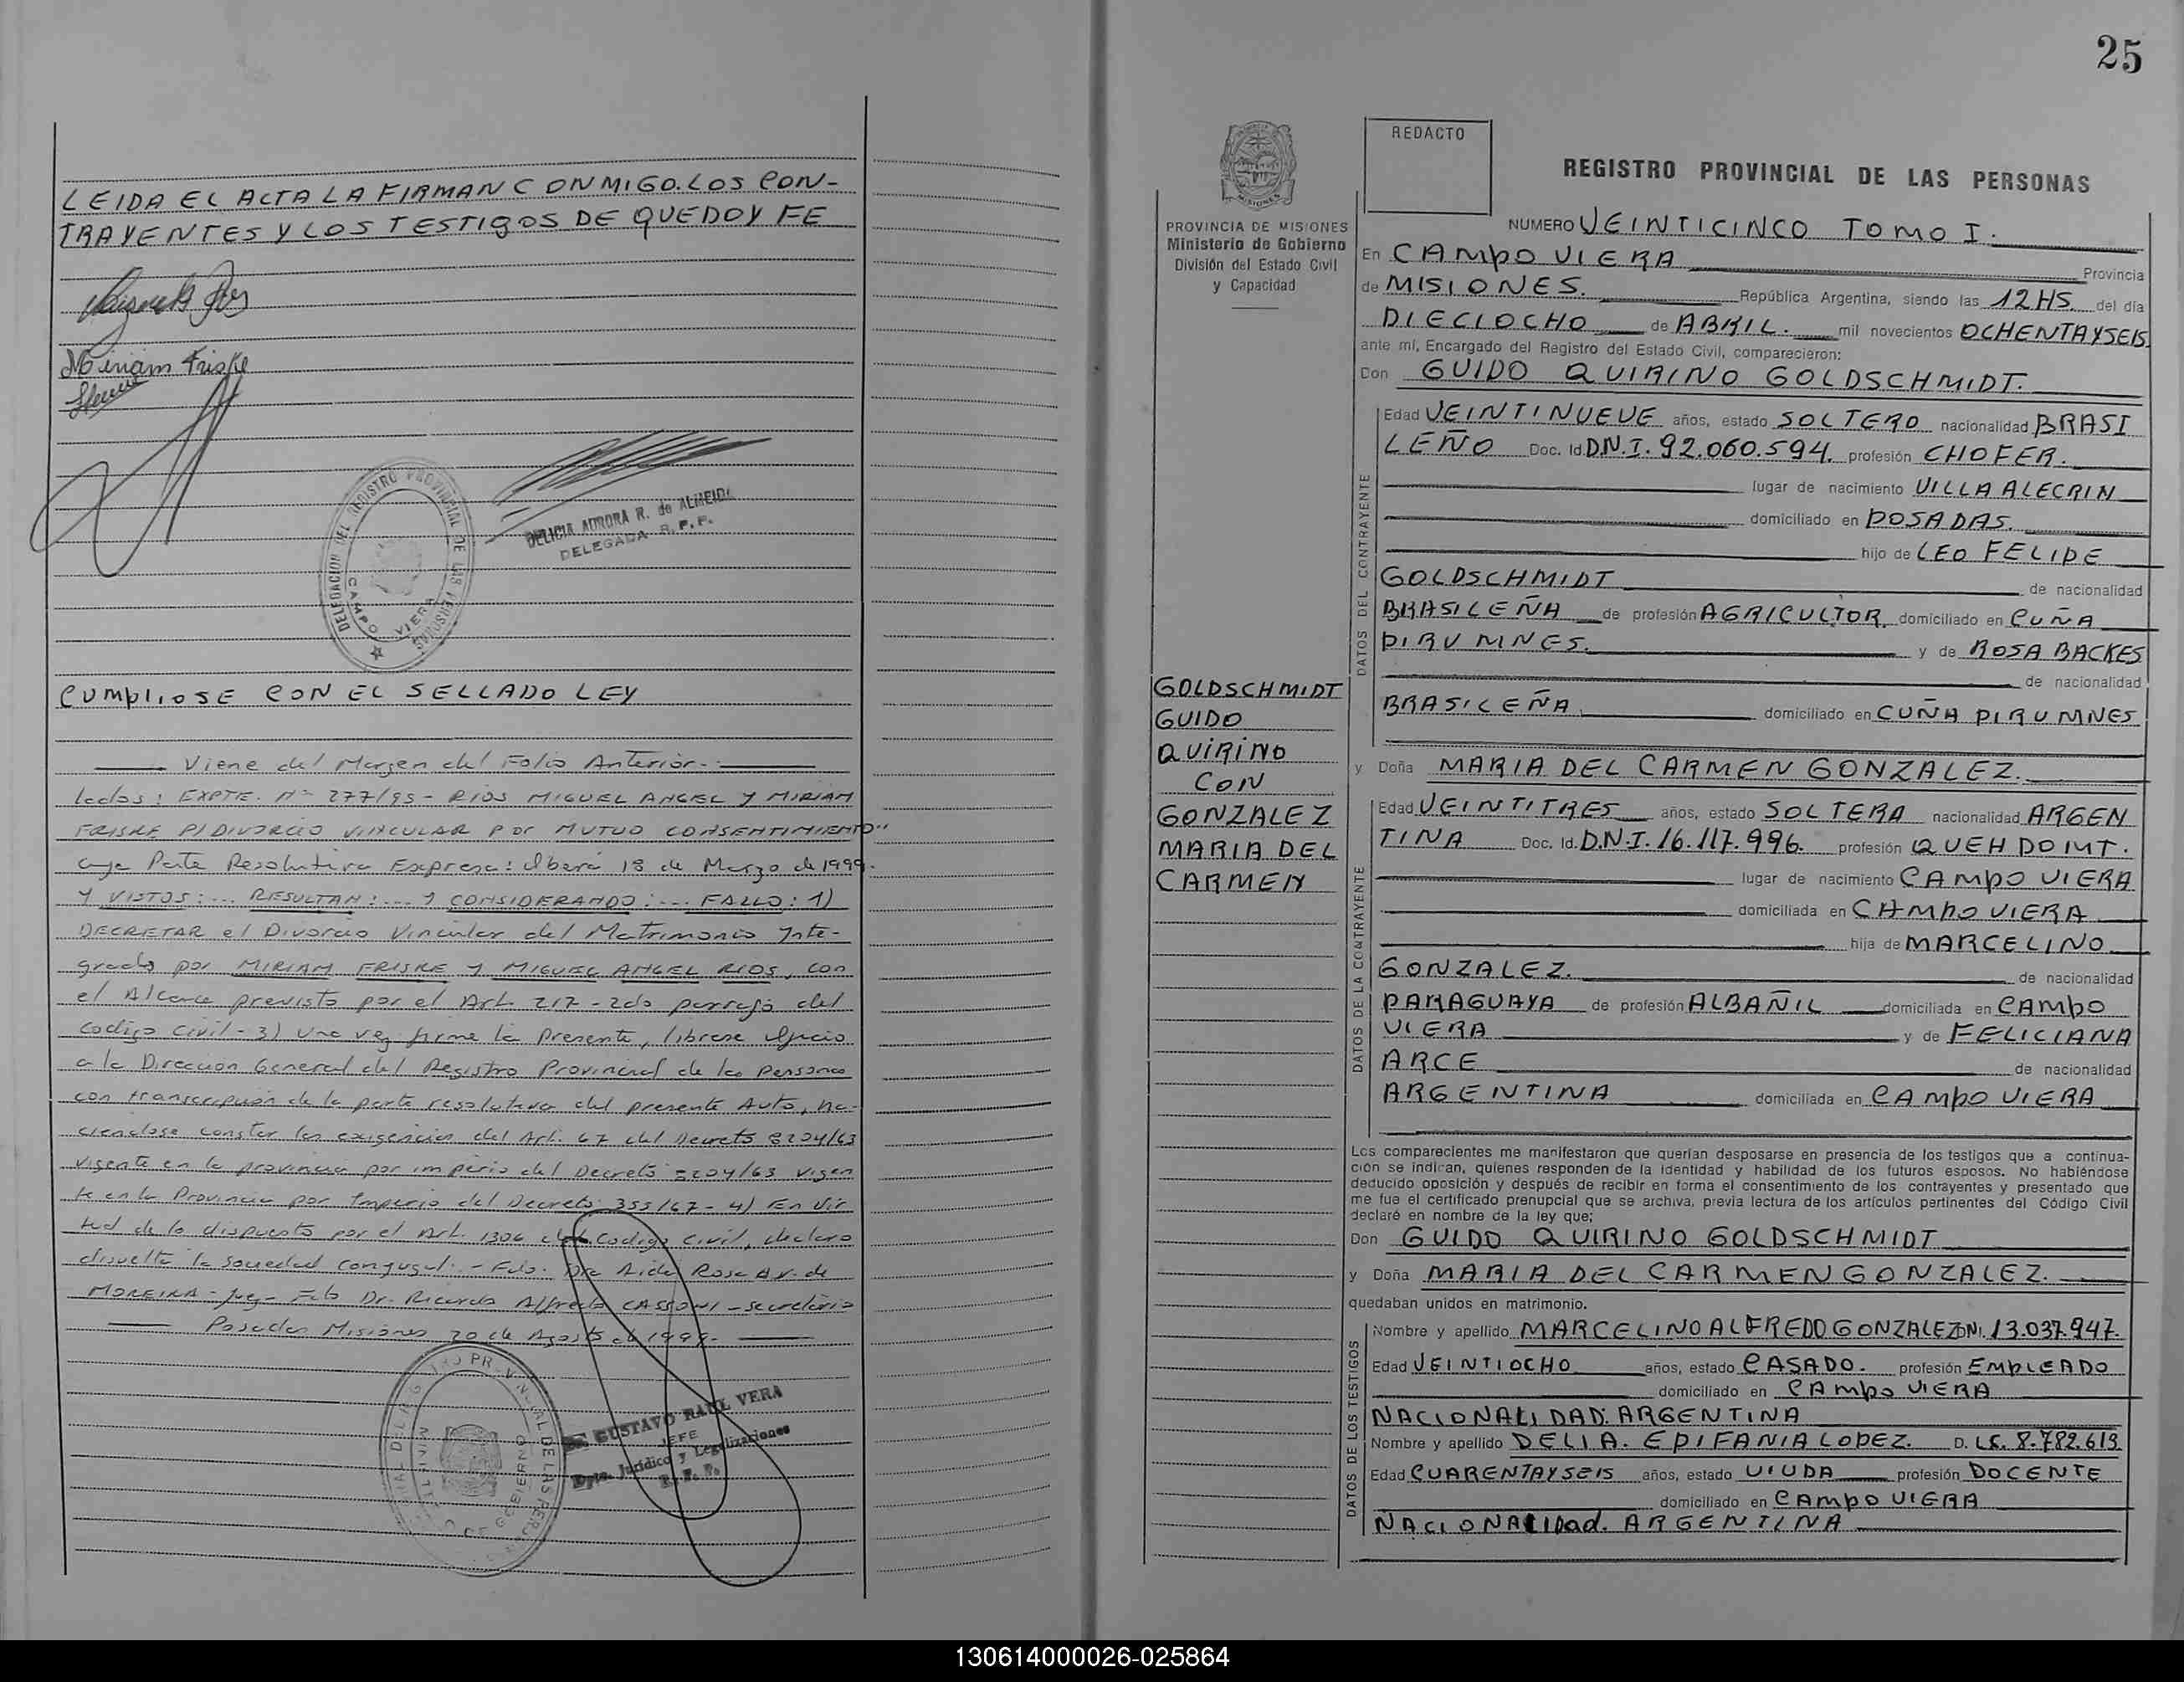 LEIDA EL ACTA LA FIRMAN CONMIGO. LOS CON-
TRAYENTES Y LOS TESTIGOS DE QUE DOY FE
Miriam Friske
DELEGACION DEL REGISTRO PROVINCIAL DE LAS PERSONAS
CAMPO VIERA
DELICIA AURORA R. de ALMEIDA
DELEGADA R. P. P.
CUMPLIOSE CON EL SELLADO LEY
Viene del Margen del Folio Anterior.-
lados: EXPTE. Nº 277/95 - RIOS MIGUEL ANGEL Y MIRIAM
FRISKE P/DIVORCIO VINCULAR POR MUTUO CONSENTIMIENTO"
cuya Parte Resolutiva Expresa: Oberá 18 de Marzo de 1999.
Y VISTOS:... RESULTAN:... Y CONSIDERANDO:... FALLO: 1)
DECRETAR el Divorcio Vincular del Matrimonio Inte-
grado por MIRIAM FRISKE Y MIGUEL ANGEL RIOS, con
el Alcance previsto por el Art. 217 - 2do parrafo del
Codigo Civil - 3) Una vez firme la presente, librese Oficio
a la Direccion General del Registro Provincial de las Personas
con transcripción de la parte resolutiva del presente Auto, ha-
ciendose constar las exigencias del Art. 67 del Decreto 8204/63
vigente en la provincia por imperio del Decreto 8204/63 vigen
te en la Provincia por Imperio del Decreto 355/67 - 4) En vir
tud de lo dispuesto por el Art. 1306 del Codigo Civil, declaro
disuelta la sociedad conyugal. - Fdo. Dra Aide Rosa de
MOREIRA - Juez - Fdo Dr. Ricardo Alfredo CASSONI - Secretario
Posadas Misiones 20 de Agosto de 1999.-
GUSTAVO RAUL VERA
JEFE
Dpto. Jurídico y Legalizaciones
R. P. P.
25
REDACTO
REGISTRO PROVINCIAL DE LAS PERSONAS
PROVINCIA DE MISIONES
Ministerio de Gobierno
División del Estado Civil
y Capacidad
NUMERO VEINTICINCO TOMO I.
En CAMPO VIERA Provincia
de MISIONES. República Argentina, siendo las 12 HS. del día
DIECIOCHO de ABRIL. mil novecientos OCHENTAYSEIS
ante mí, Encargado del Registro del Estado Civil, comparecieron:
Don GUIDO QUIRINO GOLDSCHMIDT.
DATOS DEL CONTRAYENTE
Edad VEINTINUEVE años, estado SOLTERO nacionalidad BRASI
LEÑO Doc. Id. D.N.I. 92.060.594. profesión CHOFER.
lugar de nacimiento VILLA ALECRIN
domiciliado en POSADAS.
hijo de LEO FELIPE
GOLDSCHMIDT de nacionalidad
BRASILEÑA de profesión AGRICULTOR. domiciliado en CUÑA
PIRU MNES. y de ROSA BACKES
de nacionalidad
BRASILEÑA. domiciliado en CUÑA PIRU MNES
GOLDSCHMIDT
GUIDO
QUIRINO
CON
GONZALEZ
MARIA DEL
CARMEN
y Doña MARIA DEL CARMEN GONZALEZ.
DATOS DE LA CONTRAYENTE
Edad VEINTITRES años, estado SOLTERA nacionalidad ARGEN
TINA Doc. Id. D.N.I. 16.117.996. profesión QUEH DOMT.
lugar de nacimiento CAMPO VIERA
domiciliada en CAMPO VIERA
hija de MARCELINO
GONZALEZ. de nacionalidad
PARAGUAYA de profesión ALBAÑIL domiciliada en CAMPO
VIERA y de FELICIANA
ARCE de nacionalidad
ARGENTINA domiciliada en CAMPO VIERA
Los comparecientes me manifestaron que querían desposarse en presencia de los testigos que a continua-
ción se indican, quienes responden de la identidad y habilidad de los futuros esposos. No habiéndose
deducido oposición y después de recibir en forma el consentimiento de los contrayentes y presentado que
me fue el certificado prenupcial que se archiva, previa lectura de los artículos pertinentes del Código Civil
declaré en nombre de la ley que;
Don GUIDO QUIRINO GOLDSCHMIDT
y Doña MARIA DEL CARMEN GONZALEZ.
quedaban unidos en matrimonio.
DATOS DE LOS TESTIGOS
Nombre y apellido MARCELINO ALFREDO GONZALEZ DNI. 13.037.947.
Edad VEINTIOCHO años, estado CASADO. profesión EMPLEADO
domiciliado en CAMPO VIERA
NACIONALIDAD: ARGENTINA
Nombre y apellido DELIA. EPIFANIA LOPEZ. D. LC. 8.782.613
Edad CUARENTAYSEIS años, estado VIUDA profesión DOCENTE
domiciliado en CAMPO VIERA
NACIONALIDad. ARGENTINA
130614000026-025864